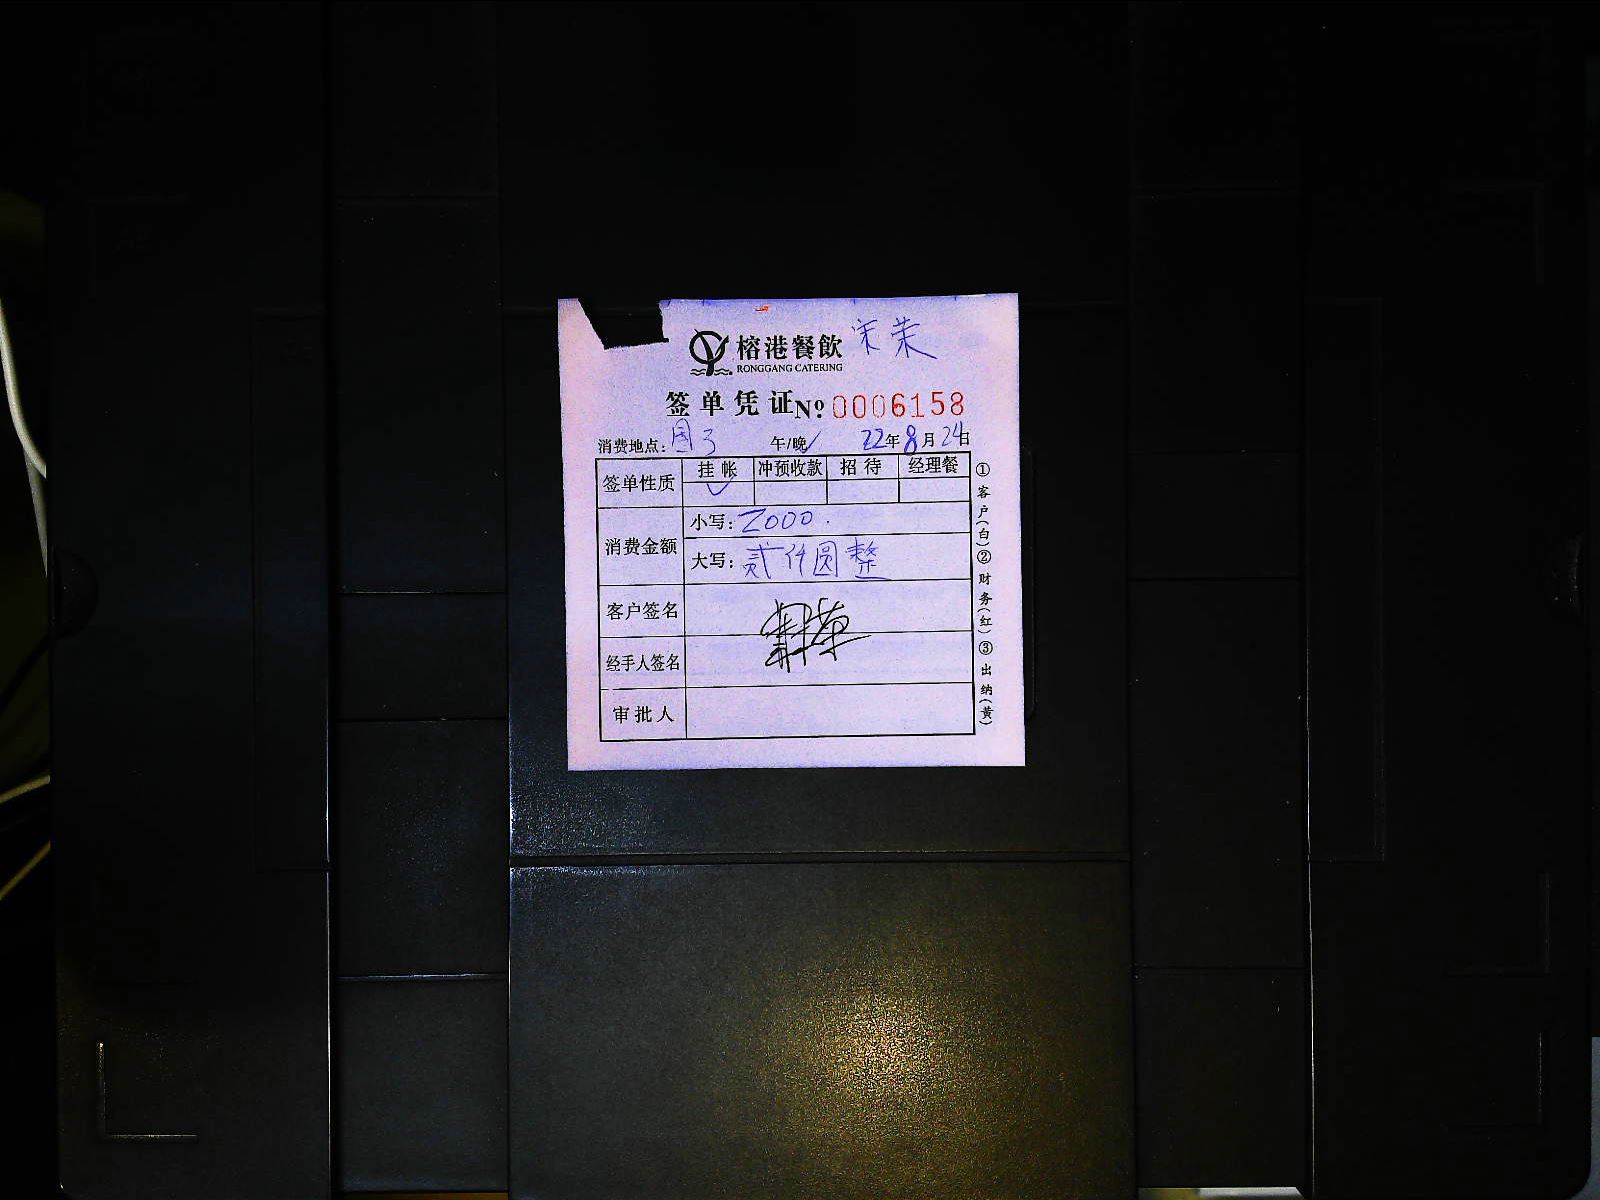 榕港餐飲 宋荣
RONGGANG CATERING
签单凭证№ 0006158
消费地点: 午/晚√ 22年8月24日
签单性质 挂帐 冲预收款 招待 经理餐
√
消费金额
小写: 2000.
大写: 贰仟圆整
客户签名
经手人签名
审批人
①客户(白)②财务(红)③出纳(黄)